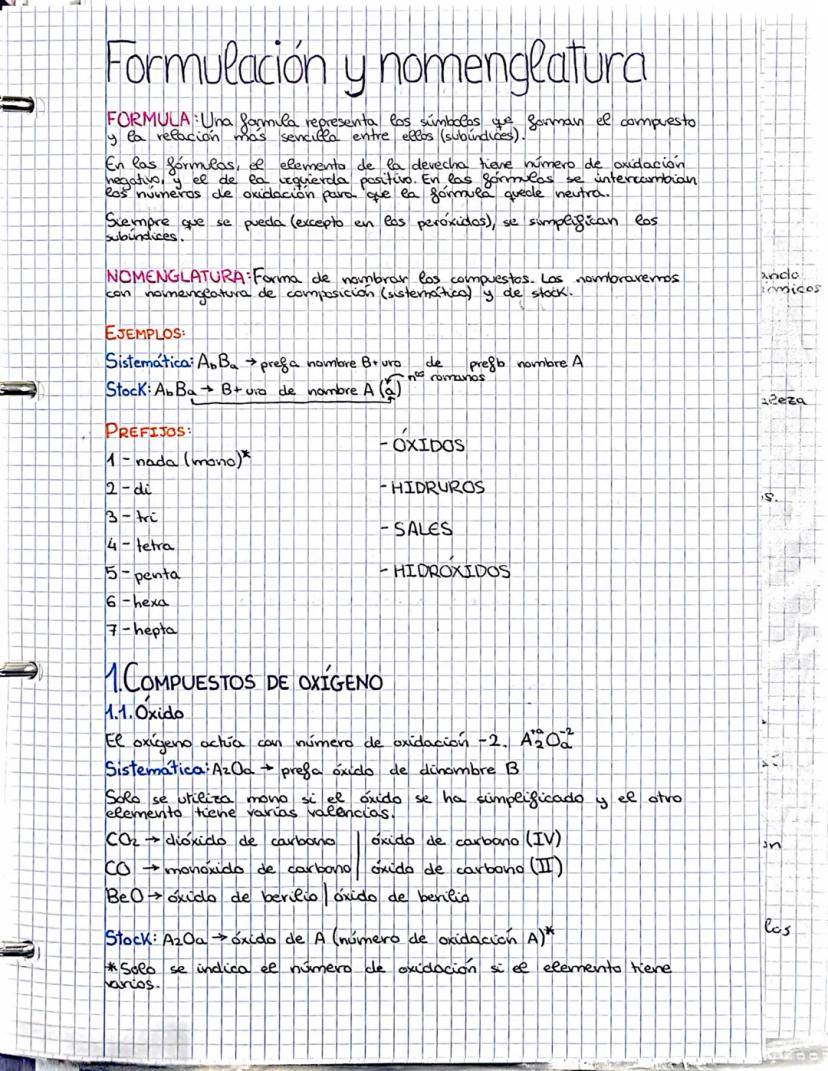 Formulación y nomenglatura
FORMULA: Una formula representa los símbolos qe forman el compuesto
y la relación más sencilla entre ellos (subíndices).
En las fórmulas, el elemento de la derecha tiene número de oxidación
negativo, y el de la izquierda positivo. En las fórmulas se intercambian
los números de oxidación para que la fórmula quede neutra.
Siempre que se pueda (excepto en los peróxidos), se simplifican los
subíndices.
NOMENGLATURA: Forma de nombrar los compuestos. Los nombraremos
con nomenglatura de composición (sistemática) y de stock.
EJEMPLOS:
Sistemática: AbBa → prefa nombre B+uro de prefb nombre A
Stock: AbBa → B+uro de nombre A (a) nos romanos
PREFIJOS:
1 - nada (mono)*
2 - di
3 - tri
4 - tetra
5 - penta
6 - hexa
7 - hepta
- ÓXIDOS
- HIDRUROS
- SALES
- HIDRÓXIDOS
1. COMPUESTOS DE OXÍGENO
1.1. Óxido
El oxígeno actúa con número de oxidación -2. A₂⁺ᵃOₐ⁻²
Sistemática: A₂Oa → prefa óxido de dinombre B
Solo se utiliza mono si el óxido se ha simplificado y el otro
elemento tiene varias valencias.
CO₂ → dióxido de carbono | óxido de carbono (IV)
CO → monóxido de carbono | óxido de carbono (II)
BeO → óxido de berilio | óxido de berilio
Stock: A₂Oa → óxido de A (número de oxidación A)*
* Solo se indica el número de oxidación si el elemento tiene
varios.
ando
s.
las